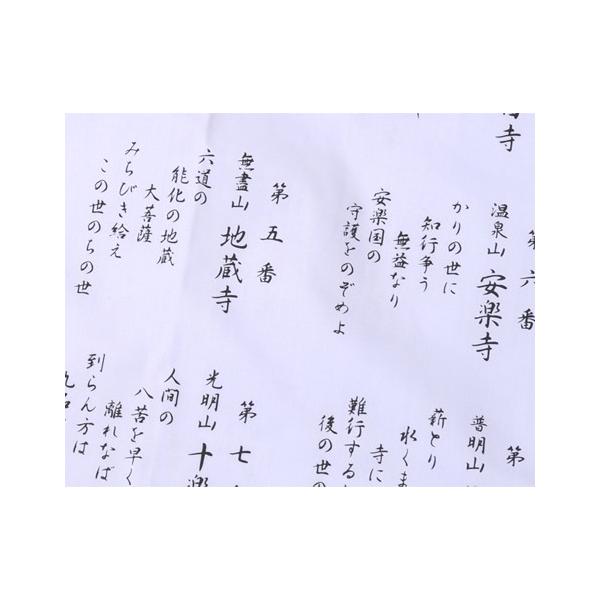 寺
第六番
温泉山 安楽寺
かりの世に
知行争う
無益なり
安楽国の
守護をのぞめよ
第五番
無盡山 地蔵寺
六道の
能化の地蔵
大菩薩
みちびき給え
この世のちの世
第
普明山
薪とり
水くま
寺に
難行する
後の世の
第七
光明山 十楽
人間の
八苦を早く
離れなば
到らん方は